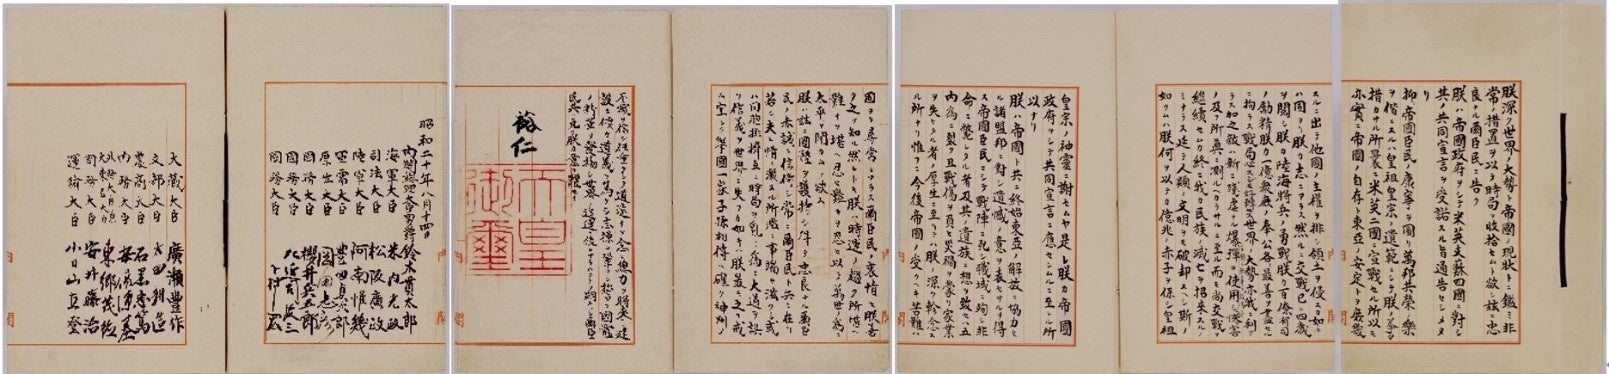 朕深ク世界ノ大勢ト帝國ノ現狀トニ鑑ミ非
常ノ措置ヲ以テ時局ヲ收拾セムト欲シ茲ニ忠
良ナル爾臣民ニ告ク
朕ハ帝國政府ヲシテ米英支蘇四國ニ對シ
其ノ共同宣言ヲ受諾スル旨通告セシメタ
リ
抑帝國臣民ノ康寧ヲ圖リ萬邦共榮ノ樂
ヲ偕ニスルハ皇祖皇宗ノ遺範ニシテ朕ノ拳々
措カサル所曩ニ米英二國ニ宣戰セル所以モ
亦實ニ帝國ノ自存ト東亞ノ安定トヲ庶幾
スルニ出テ他國ノ主權ヲ排シ領土ヲ侵スカ如キ
ハ固ヨリ朕カ志ニアラス然ルニ交戰已ニ四歲
ヲ閲シ朕カ陸海將兵ノ勇戰朕カ百僚有司
ノ勵精朕カ一億衆庶ノ奉公各最善ヲ盡セル
ニ拘ラス戰局必スシモ好轉セス世界ノ大勢亦我ニ利ア
ラス加之敵ハ新ニ殘虐ナル爆彈ヲ使用シテ頻ニ無辜ヲ殺傷シ慘害
ノ及フ所眞ニ測ルヘカラサルニ至ル而モ尚交戰ヲ
繼續セムカ終ニ我カ民族ノ滅亡ヲ招來スルノ
ミナラス延テ人類ノ文明ヲモ破却スヘシ斯ノ
如クムハ朕何ヲ以テカ億兆ノ赤子ヲ保シ皇祖
皇宗ノ神靈ニ謝セムヤ是レ朕カ帝國
政府ヲシテ共同宣言ニ應セシムルニ至レル所
以ナリ
朕ハ帝國ト共ニ終始東亞ノ解放ニ協力セ
ル諸盟邦ニ對シ遺憾ノ意ヲ表セサルヲ得
ス帝國臣民ニシテ戰陣ニ死シ職域ニ殉シ非
命ニ斃レタル者及其ノ遺族ニ想ヲ致セハ五
内爲ニ裂ク且戰傷ヲ負ヒ災禍ヲ蒙リ家業
ヲ失ヒタル者ノ厚生ニ至リテハ朕ノ深ク軫念ス
ル所ナリ惟フニ今後帝國ノ受クヘキ苦難ハ
固ヨリ尋常ニアラス爾臣民ノ衷情モ朕善
ク之ヲ知ル然レトモ朕ハ時運ノ趨ク所堪ヘ
難キヲ堪ヘ忍ヒ難キヲ忍ヒ以テ萬世ノ爲ニ
太平ヲ開カムト欲ス
朕ハ茲ニ國體ヲ護持シ得テ忠良ナル爾臣
民ノ赤誠ニ信倚シ常ニ爾臣民ト共ニ在リ
若シ夫レ情ノ激スル所濫ニ事端ヲ滋クシ或
ハ同胞排擠互ニ時局ヲ亂リ爲ニ大道ヲ誤
リ信義ヲ世界ニ失フカ如キハ朕最モ之ヲ戒
ム宜シク擧國一家子孫相傳ヘ確ク神州ノ
不滅ヲ信シ任重クシテ道遠キヲ念ヒ總力ヲ將來ノ建
設ニ傾ケ道義ヲ篤クシ志操ヲ鞏クシ誓テ國體
ノ精華ヲ發揚シ世界ノ進運ニ後レサラムコトヲ期スヘシ爾臣
民其レ克ク朕カ意ヲ體セヨ
裕仁
天皇
御璽
昭和二十年八月十四日
内閣總理大臣男爵鈴木貫太郎
海軍大臣 米内光政
司法大臣 松阪廣政
陸軍大臣 阿南惟幾
軍需大臣 豊田貞次郎
厚生大臣 岡田忠彦
國務大臣 櫻井兵五郎
國務大臣 左近司政三
國務大臣 下村宏
大藏大臣 廣瀨豊作
文部大臣 太田耕造
農商大臣 石黒忠篤
内務大臣 安倍源基
外務大臣兼大東亞大臣 東郷茂徳
國務大臣 安井藤治
運輸大臣 小日山直登
内閣